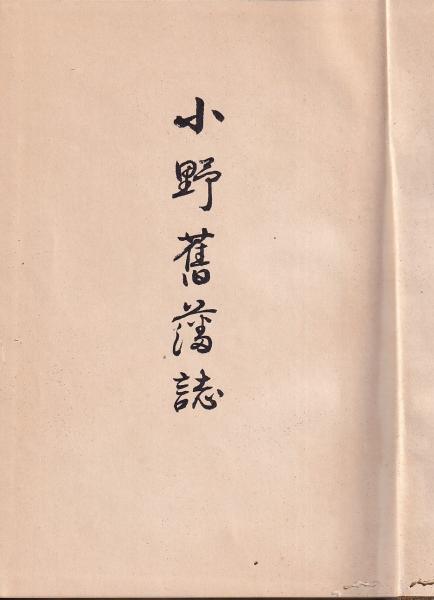 小野舊藩誌